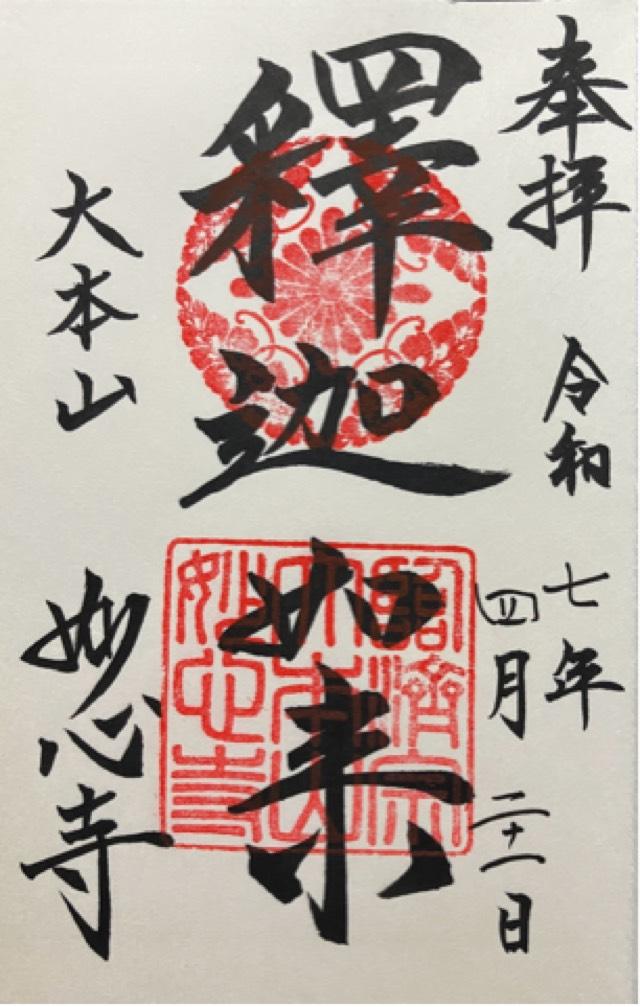 奉拝
令和七年
四月二十一日
釋迦如来
臨濟宗
大本山
妙心寺
大本山
妙心寺